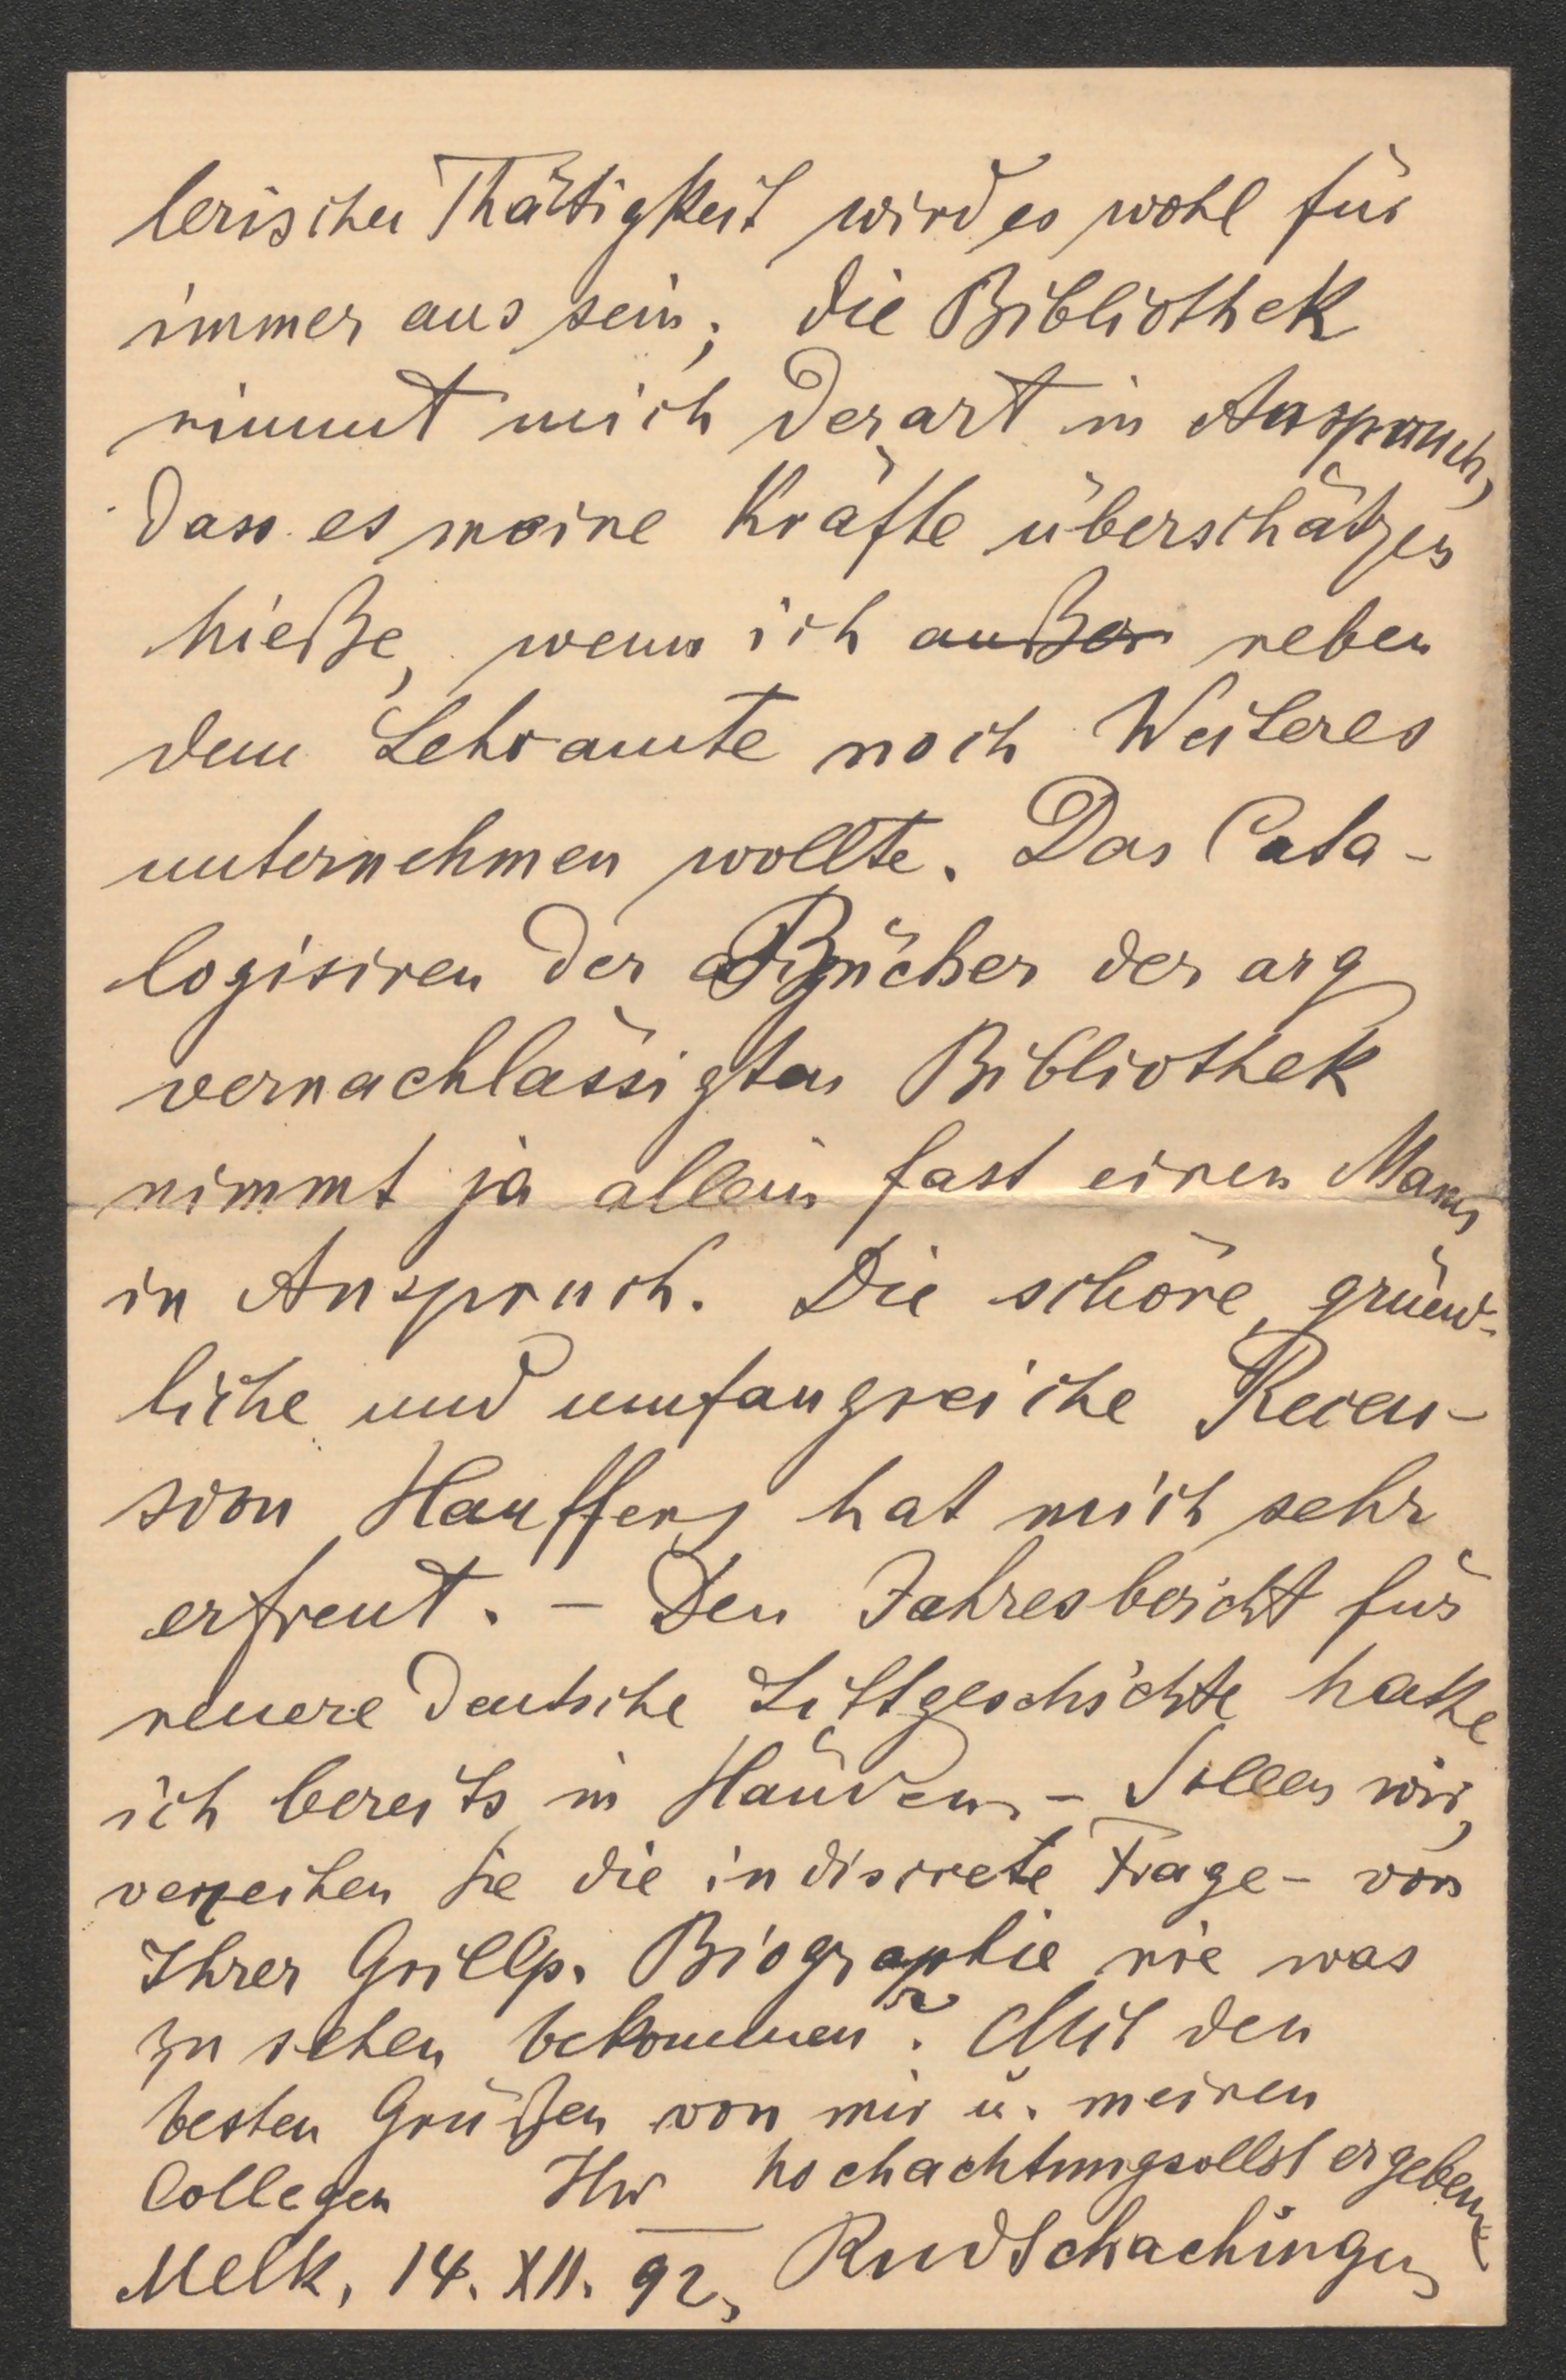 lerischer Thätigkeit wird es wohl für
immer aus sein; die Bibliothek
nimmt mich derart in Anspruch,
dass es meine Kräfte überschätzen
hieße, wenn ich außer neben
dem Lehramte noch Weiteres
unternehmen wollte. Das Cata-
logisiren der Bücher der arg
vernachlässigten Bibliothek
nimmt ja allein fast einen Mann
in Anspruch. Die schöne, gründ-
liche und umfangreiche Recen-
sion Hauffens hat mich sehr
erfreut. – Den Jahresbericht für
neuere deutsche Littgeschichte hatte
ich bereits in Händen. – Sollen wir,
verzeihen Sie die indiscrete Frage – von
Ihrer Grillp. Biographie nie was
zu sehen bekommen? Mit den
besten Grüßen von mir u. meinen
Collegen Ihr hochachtungsvollst ergebener
Melk, 14. XII. 92, RudSchachinger